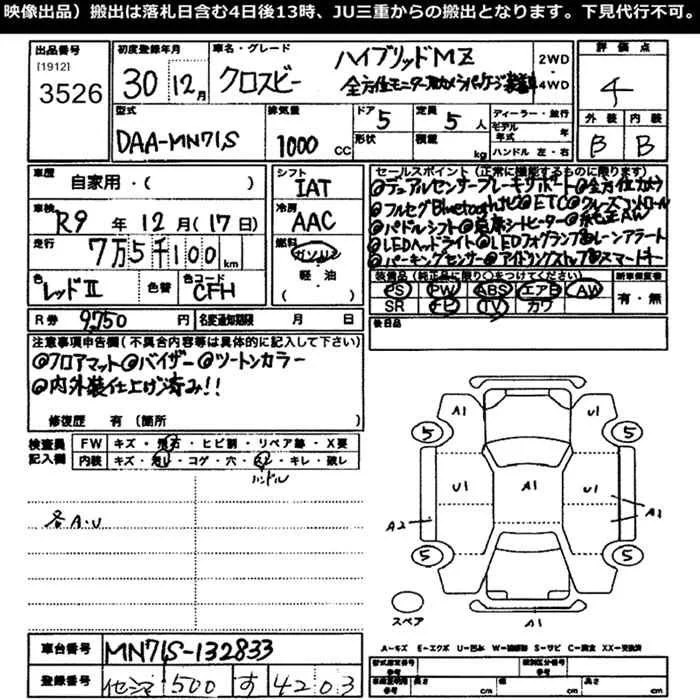 映像出品）搬出は落札日含む4日後13時、JU三重からの搬出となります。下見代行不可。
出品番号
[1912]
3526
初度登録年月
30 12月
車名・グレード
クロスビー
ハイブリッドMZ
全方位モニター用カメラパッケージ装着車
2WD
4WD
評価点
4
外装 内装
B B
型式
DAA-MN71S
排気量
1000 CC
ドア 5
形状
定員 5 人
積載 kg
ディーラー・並行
モデル年式 年
ハンドル 左・右
車歴
自家用・( )
車検
R9 年 12 月 ( 17 日)
走行
7万5千100 km
色
レッドII
色替
色コード
CFH
シフト
IAT
冷房
AAC
燃料
ガソリン
軽・油
( )
セールスポイント（正常に機能するものに限ります）
◎デュアルセンサーブレーキサポート◎全方位カメラ
◎フルセグBluetoothナビ◎ETC◎クルーズコントロール
◎パドルシフト◎座席シートヒーター◎純正AW
◎LEDヘッドライト◎LEDフォグランプ◎レーンアラート
◎パーキングセンサー◎アイドリングストップ◎スマートキー
装備品（純正品に限り○をつけてください） 新車保証書
PS PW ABS エアB AW 有・無
SR TV カワ
後日品
R券 9,750 円 名変通知期限 月 日
注意事項申告欄（不具合内容等は具体的に記入して下さい）
◎フロアマット◎バイザー◎ツートンカラー
◎内外装仕上げ済み!!
修復歴 有（箇所 ）
検査員記入欄
FW キズ・飛石・ヒビ割・リペア跡・X要
内装 キズ・汚レ・コゲ・穴・スレ・キレ・破レ
ハンドル
各A・U
A1 U1
5 5
U1 A1 U1
A2 A1
5 5
スペア
A1
A－キズ E－エクボ U－凹み W－補修跡 S－サビ C－腐食 XX－交換済
車台番号 MN71S-132833
登録番号 500 す 4203
型式指定番号 類別区分番号
長さ cm 幅 cm 高さ cm